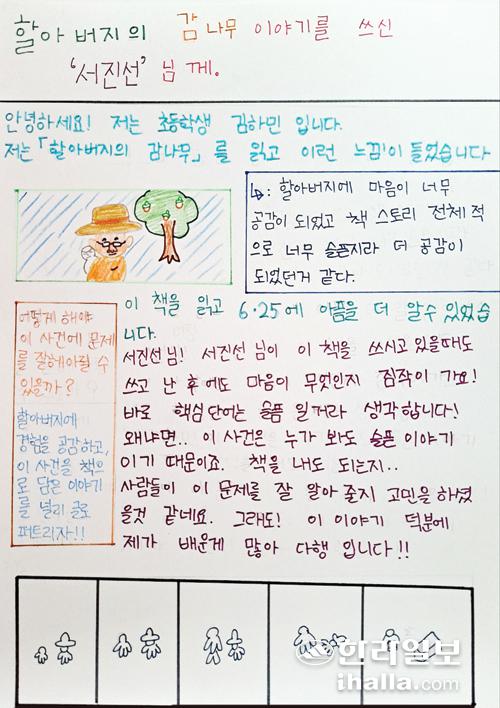 할아버지의 감나무 이야기를 쓰신
'서진선' 님께.
안녕하세요! 저는 초등학생 김하민 입니다.
저는 「할아버지의 감나무」를 읽고 이런 느낌이 들었습니다
↳: 할아버지에 마음이 너무
공감이 되었고 책 스토리 전체 적
으로 너무 슬픈지라 더 공감이
되었던거 같다.
이 책을 읽고 6·25에 아픔을 더 알수 있었습
니다.
어떻게 해야
이 사건에 문제
를 잘해아릴 수
있을까?
할아버지에
경험을 공감하고,
이 사건을 책으
로 담은 이야기
를 널리 글로
퍼트리자!!
서진선님! 서진선 님이 이 책을 쓰시고 있을때도
쓰고 난 후에도 마음이 무엇인지 짐작이 가요!
바로 핵심 단어는 슬픔 일거라 생각합니다!
왜냐면.. 이 사건은 누가 봐도 슬픈 이야기
이기 때문이죠. 책을 내도 되는지..
사람들이 이 문제를 잘 알아 줄지 고민을 하셨
을것 같네요. 그래도! 이 이야기 덕분에
제가 배운게 많아 다행 입니다!!
한라일보
ihalla.com